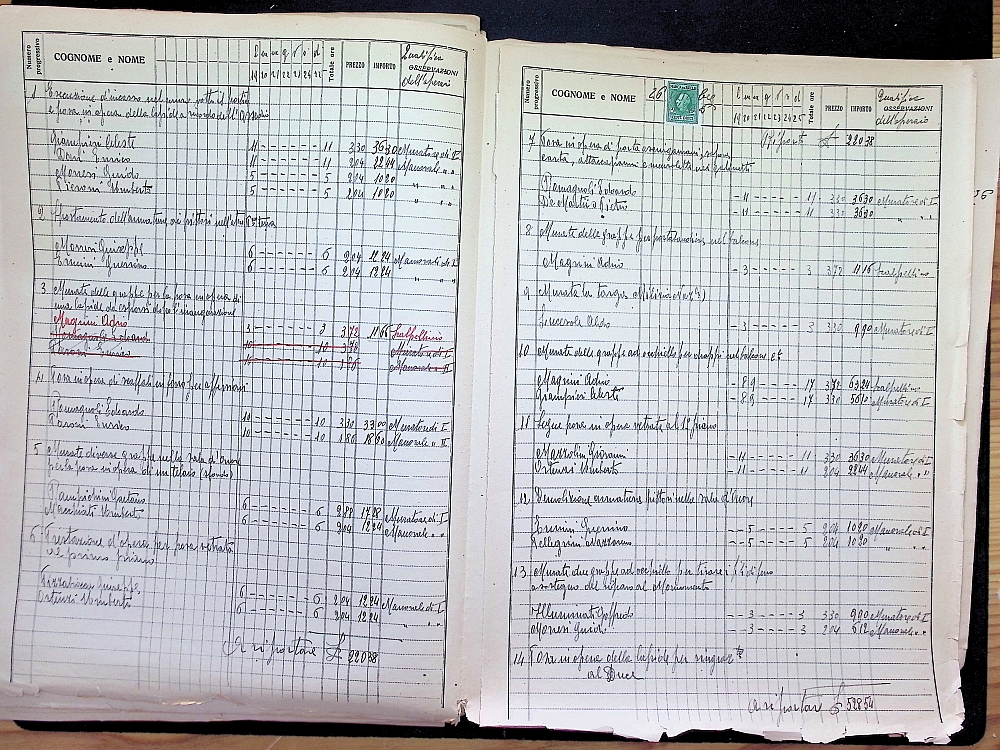 Numero progressivo COGNOME e NOME D l m m g v s d Totale ore PREZZO IMPORTO Qualifica
OSSERVAZIONI
19 20 21 22 23 24 25 dell'operaio
1 Esecuzione d'incasso nel muro sotto il portic
e posa in opera della lapide a ricordo dell'Assedio
Giampieri Celeste 11 - - - - - - 11 330 3630 Muratore di I
Enrico 11 - - - - - - 11 204 2244 Manovale " "
Moresi Guido 5 - - - - - - 5 204 1020 " "
Pieroni Umberto 5 - - - - - - 5 204 1020 " "
2 Spostamento dell'armatura
Moresi Giuseppe 6 - - - - - - 6 204 1224 Manovale di I
Ermini Guerrino 6 - - - - - - 6 204 1224 " "
3 Murate delle grappe per la posa in opera di
una lapide da esporsi dopo l'inaugurazione
Magnini Adrio 3 - - - - - - 3 372 1166 Scalpellino
Romagnoli Edoardo 10 10 Muratore di I
Paroni Enrico 10 10 186 Manovale " II
4 Posa in opera di scaffali in
Romagnoli Edoardo 10 - - - - - - 10 330 3300 Muratore di I
Paroni Enrico 10 - - - - - - 10 186 1860 Manovale " II
5 Murate diverse grappe nella sala d'Onore
per la posa in opera di un telaio (sfondo)
Pampichini Gaetano 6 - - - - - - 6 288 1728 Muratore di I
Macchiati Umberto 6 - - - - - - 6 204 1224 Manovale " "
6 Prestazione d'opera per posa vetrata
al primo piano
Giuseppe 6 - - - - - - 6 204 1224 Manovale di I
Ortenzi Umberto 6 - - - - - - 6 204 1224 " "
A riportare £ 22038
Numero progressivo COGNOME e NOME 26 D l m m g v s d Totale ore PREZZO IMPORTO Qualifica
OSSERVAZIONI
19 20 21 22 23 24 25 dell'operaio
Riporto £ 22038
7 Posa in opera di porta asciugamani,
carta, attaccapanni e mensolette nei gabinetti
Romagnoli Edoardo - 11 - - - - - 11 330 3630 Muratore di I
De Martiis Pietro - 11 - - - - - 11 330 3630 " "
8 Murate delle grappe per portabandiera nel balcone
Magnini Adrio - 3 - - - - - 3 372 1116 Scalpellino
9 Murata la targa Milizia
Aldo - 3 - - - - - 3 330 990 Muratore di I
10 Murate delle grappe ad occhiello per drappi nel balcone
Magnini Adrio - 8 9 - - - - 17 372 6324 Scalpellino
Giampieri Celeste - 8 9 - - - - 17 330 5610 Muratore di I
11 Segue posa in opera vetrate al 1° piano
Mazzolini Giovanni - 11 - - - - - 11 330 3630 Muratore di I
Ortenzi Umberto - 11 - - - - - 11 204 2244 Manovale " "
12 Demolizione armatura pittori nella sala d'Onore
Ermini Guerrino - 5 - - - - - 5 204 1020 Manovale di I
Pellegrini Nazzareno - 5 - - - - - 5 204 1020 " "
13 Murate due grappe ad occhiello per tirare i fili di ferro
a sostegno del riparo al Monumento
Illuminati Goffredo - 3 - - - - - 3 330 990 Muratore di I
Moresi Guido - 3 - - - - - 3 204 612 Manovale " "
14 Posa in opera della lapide per
al Duce
A riportare £ 52854